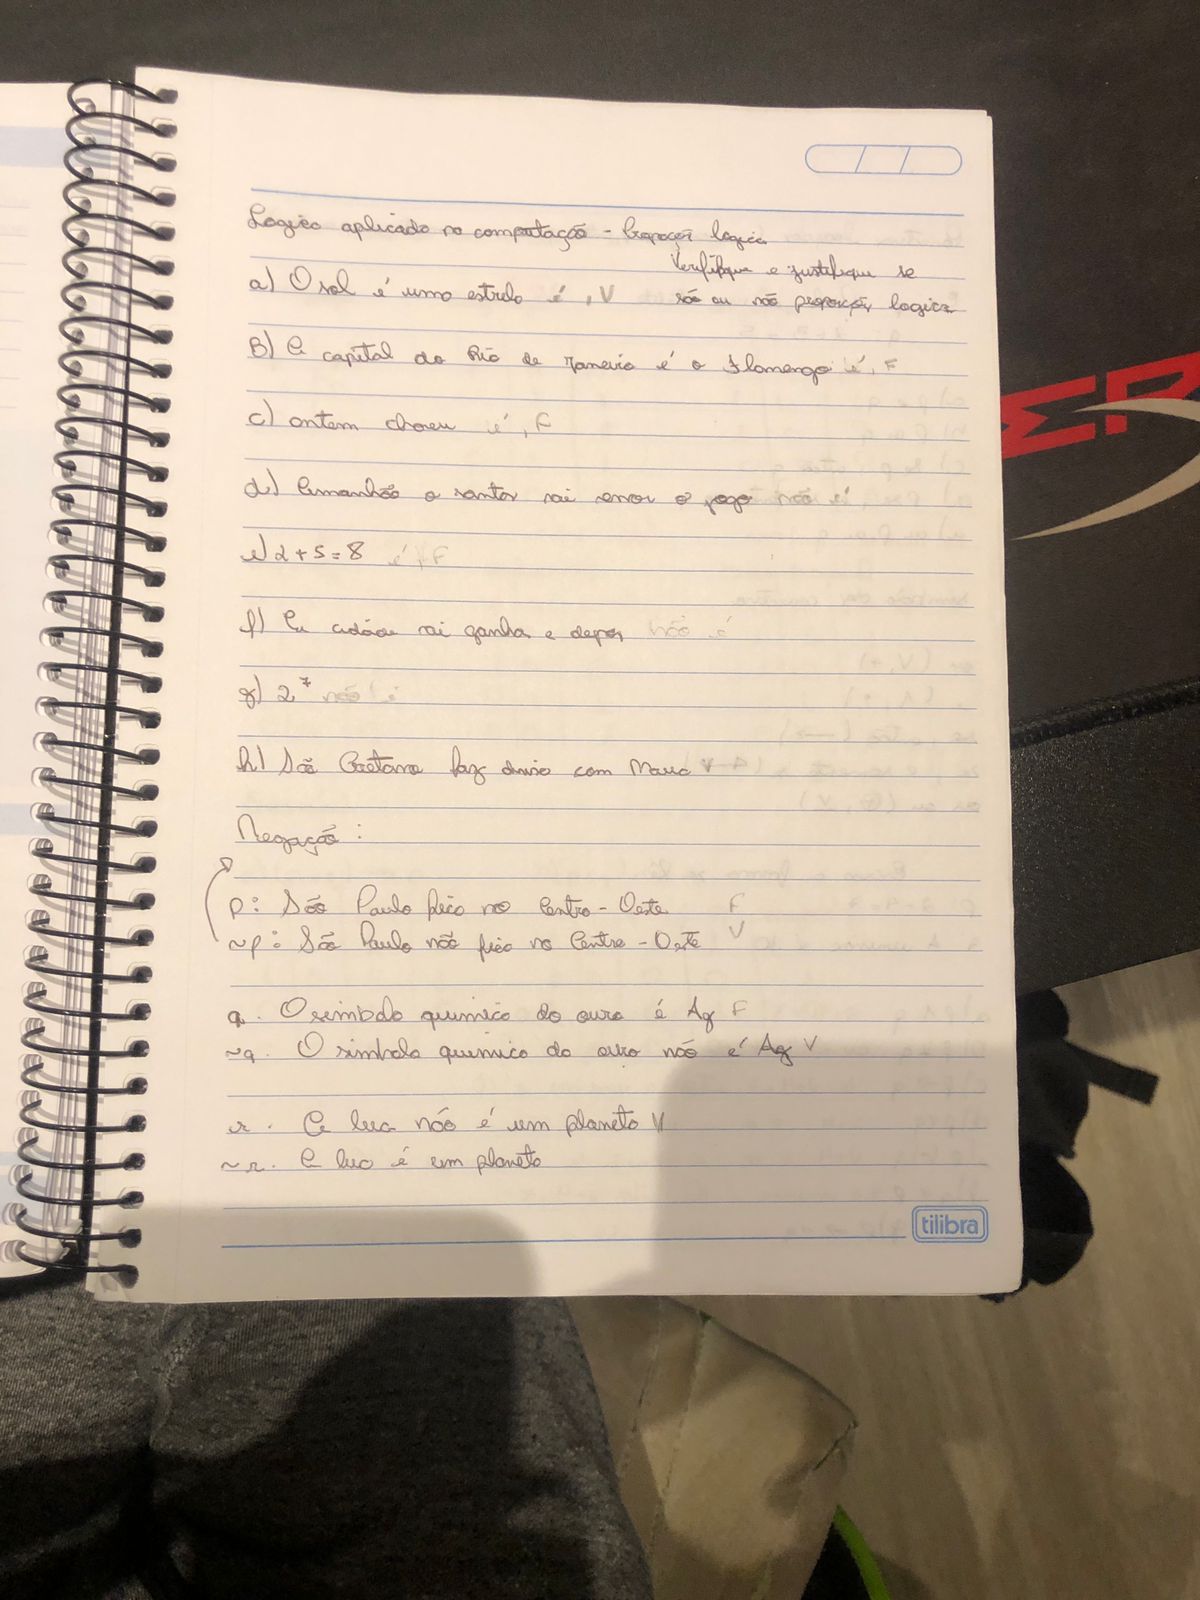 Logica aplicada na computação - Proposições logica
Verifique e justifique se
a) O sol é uma estrela é, V são ou não proposições logica
B) A capital do Rio de Janeiro é o Flamengo é, F
c) ontem choveu é, F
d) Amanhão o santos vai vencer o jogo não é
e) 2 + 5 = 8 é, F
f) vai ganha e depos não é
g) 2⁷ não é
h) São Caetano faz divisa com Maua V
Negação:
p: São Paulo fica no Centro-Oeste F
~p: São Paulo não fica no Centro-Oeste V
q. O simbolo quimico do ouro é Ag F
~q. O simbolo quimico do ouro não é Ag V
r. A lua não é um planeta V
~r. A lua é um planeta
tilibra
ER